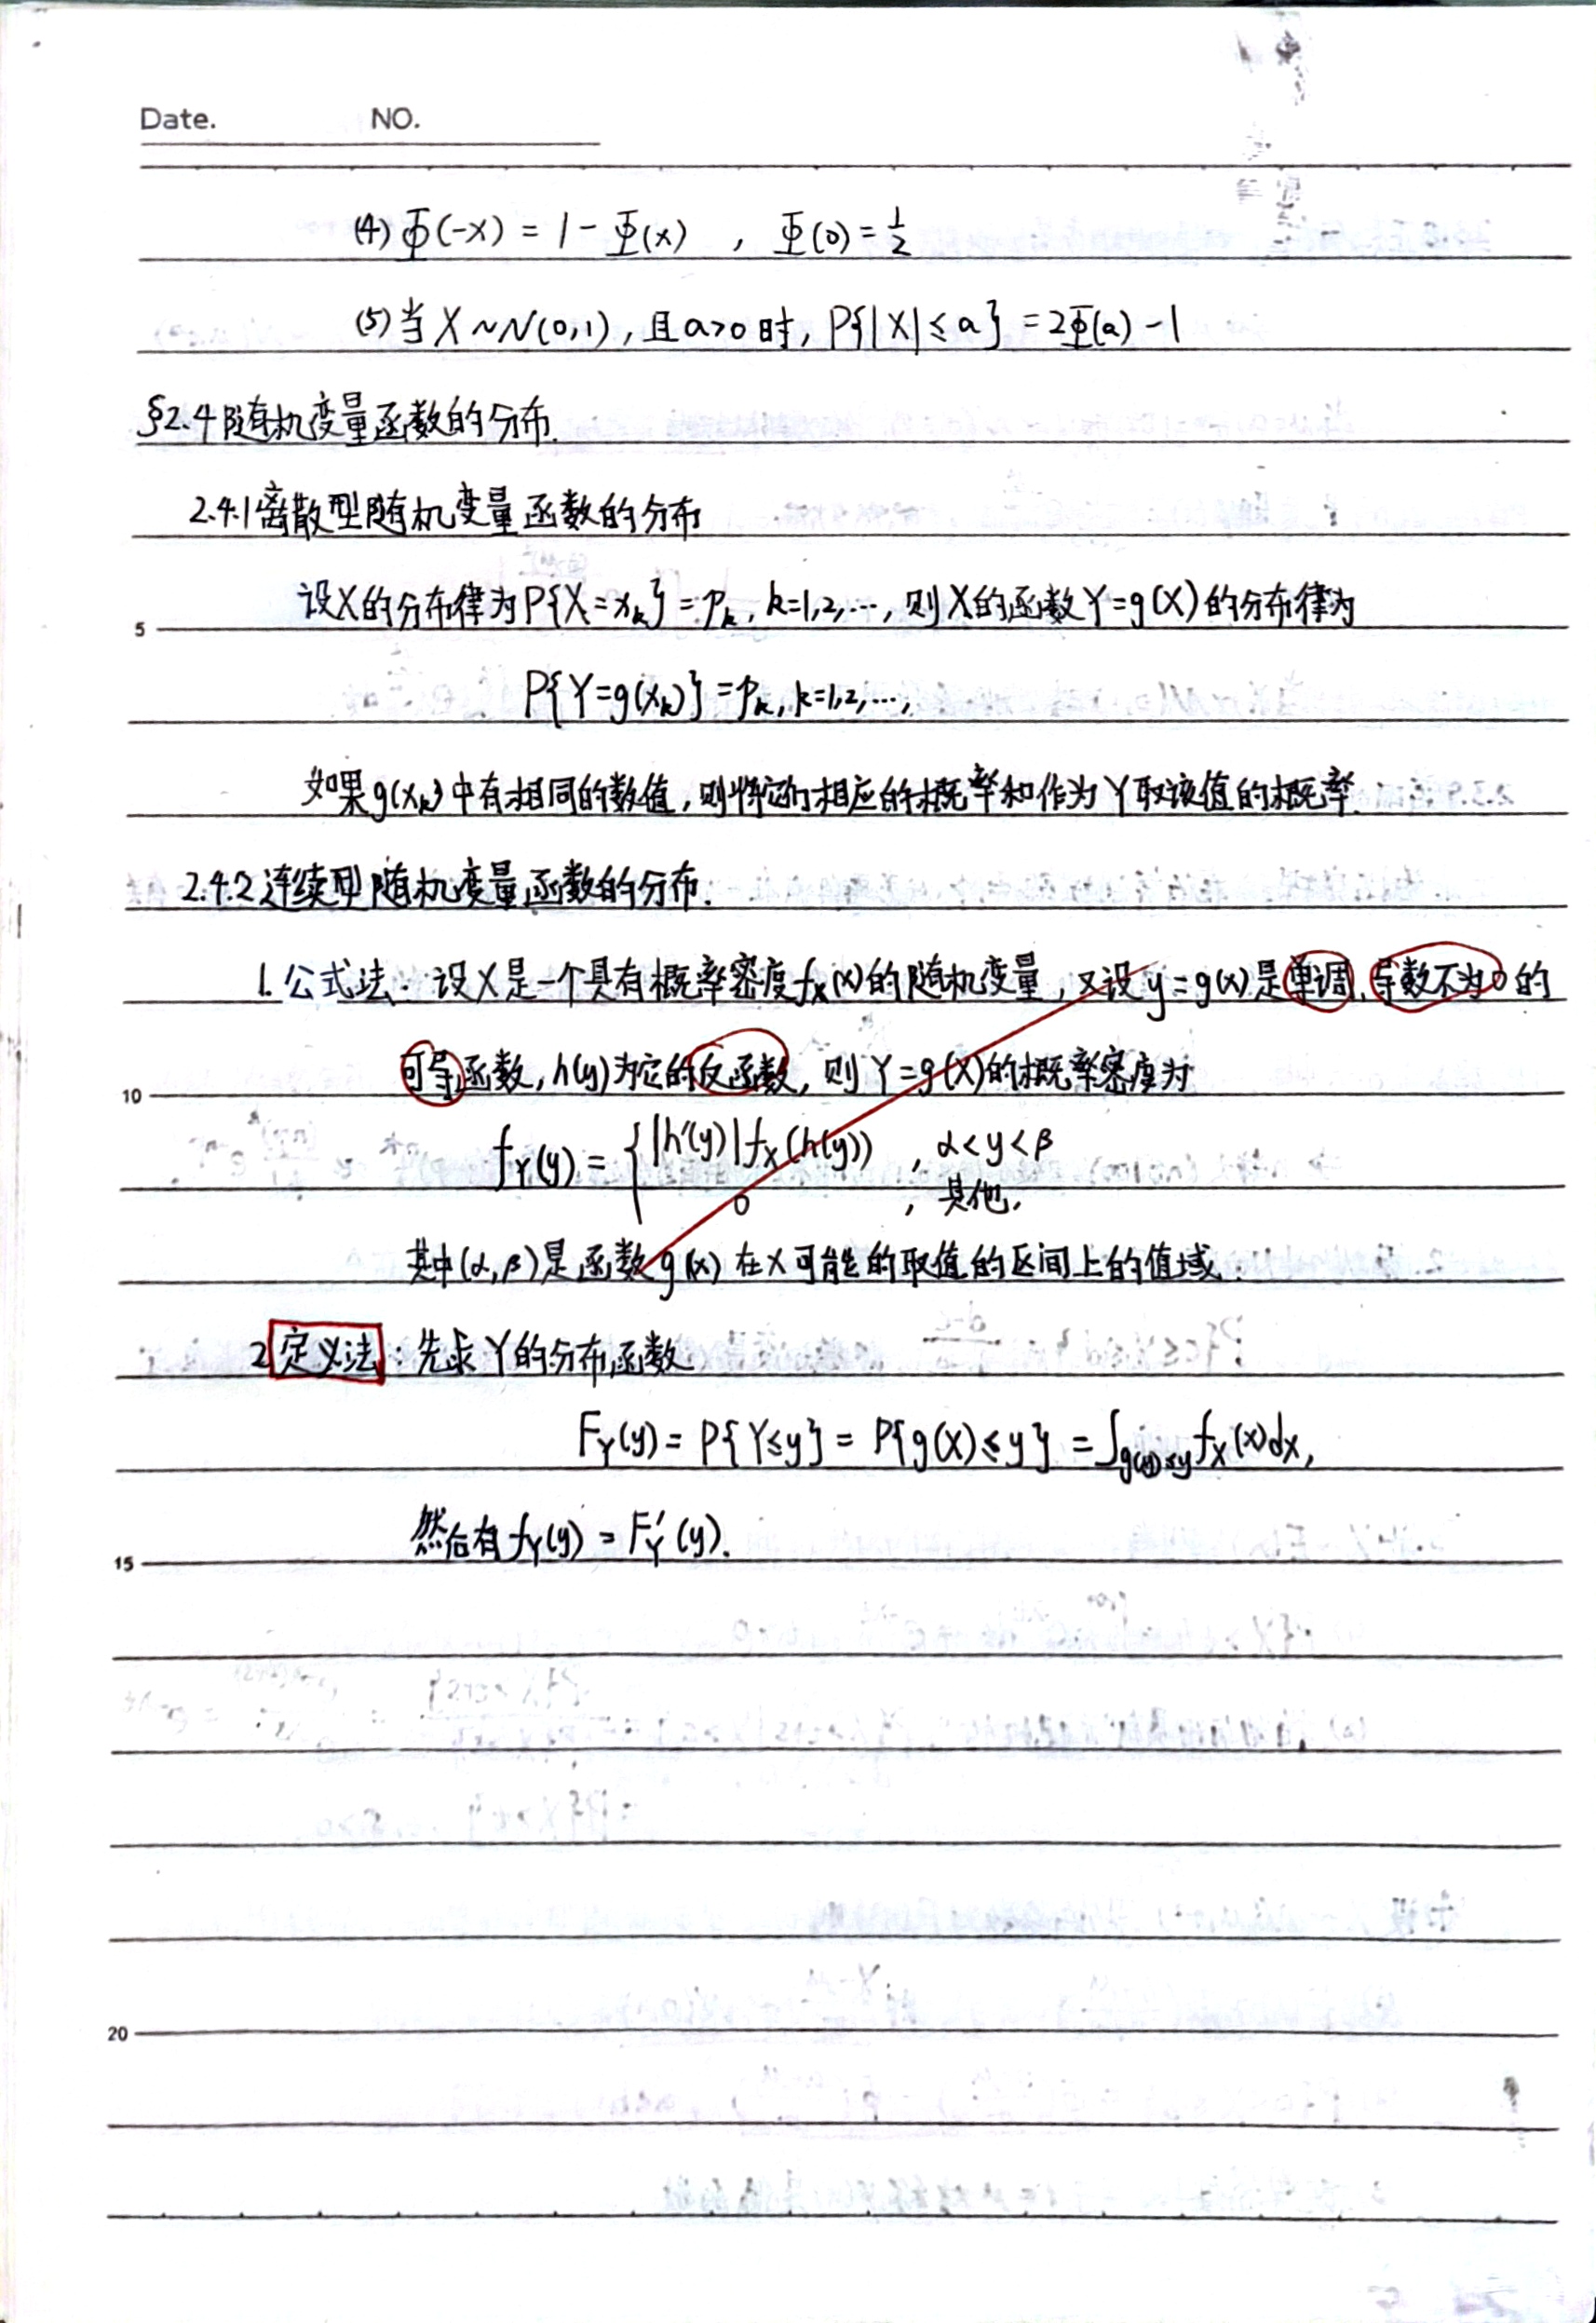 Date. NO.
(4) Φ(-x) = 1 - Φ(x) , Φ(0) = 1/2
(5) 当 X ~ N(0,1), 且 a>0 时, P{|X| ≤ a} = 2Φ(a) - 1
§2.4 随机变量函数的分布.
2.4.1 离散型随机变量函数的分布
设X的分布律为P{X=xₖ}=pₖ, k=1,2,…, 则X的函数Y=g(X)的分布律为
5
P{Y=g(xₖ)}=pₖ, k=1,2,…,
如果g(xₖ)中有相同的数值,则将它们相应的概率和作为Y取该值的概率.
2.4.2 连续型随机变量函数的分布.
1. 公式法: 设X是一个具有概率密度fX(x)的随机变量, 又设y=g(x)是单调、导数不为0的
可导函数, h(y)为它的反函数, 则Y=g(X)的概率密度为
10
fY(y) = { |h'(y)|fX(h(y)) , α<y<β
0 , 其他.
其中(α,β)是函数g(x)在X可能的取值的区间上的值域.
2 定义法: 先求Y的分布函数
FY(y) = P{Y≤y} = P{g(X)≤y} = ∫g(x)≤y fX(x)dx,
然后有fY(y) = F'Y(y).
15
20